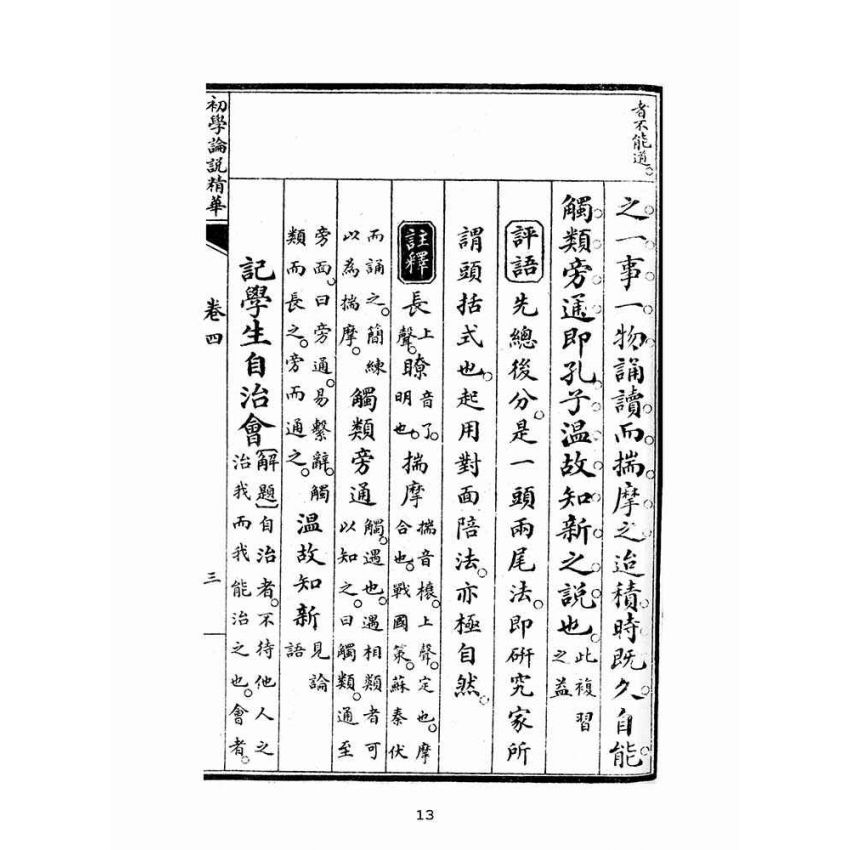 者不能道。
之。一事一物。誦讀而揣摩之。迨積時既久。自能
觸類旁通。即孔子温故知新之說也。此複習
之益
評語 先總後分。是一頭兩尾法。即研究家所
謂頭括式也。起用對面陪法。亦極自然。
註釋 長上聲。瞭音了。明也。揣摩揣音椳。上聲。定也。摩合也。戰國策。蘇秦伏
而誦之。簡練以為揣摩。觸類旁通觸。遇也。遇相類者可以知之。曰觸類。通至
旁面。曰旁通。易繫辭。觸類而長之。旁而通之。温故知新見論語
記學生自治會【解題】自治者。不待他人之治我而我能治之也。會者。
初學論說精華 卷四 三
13